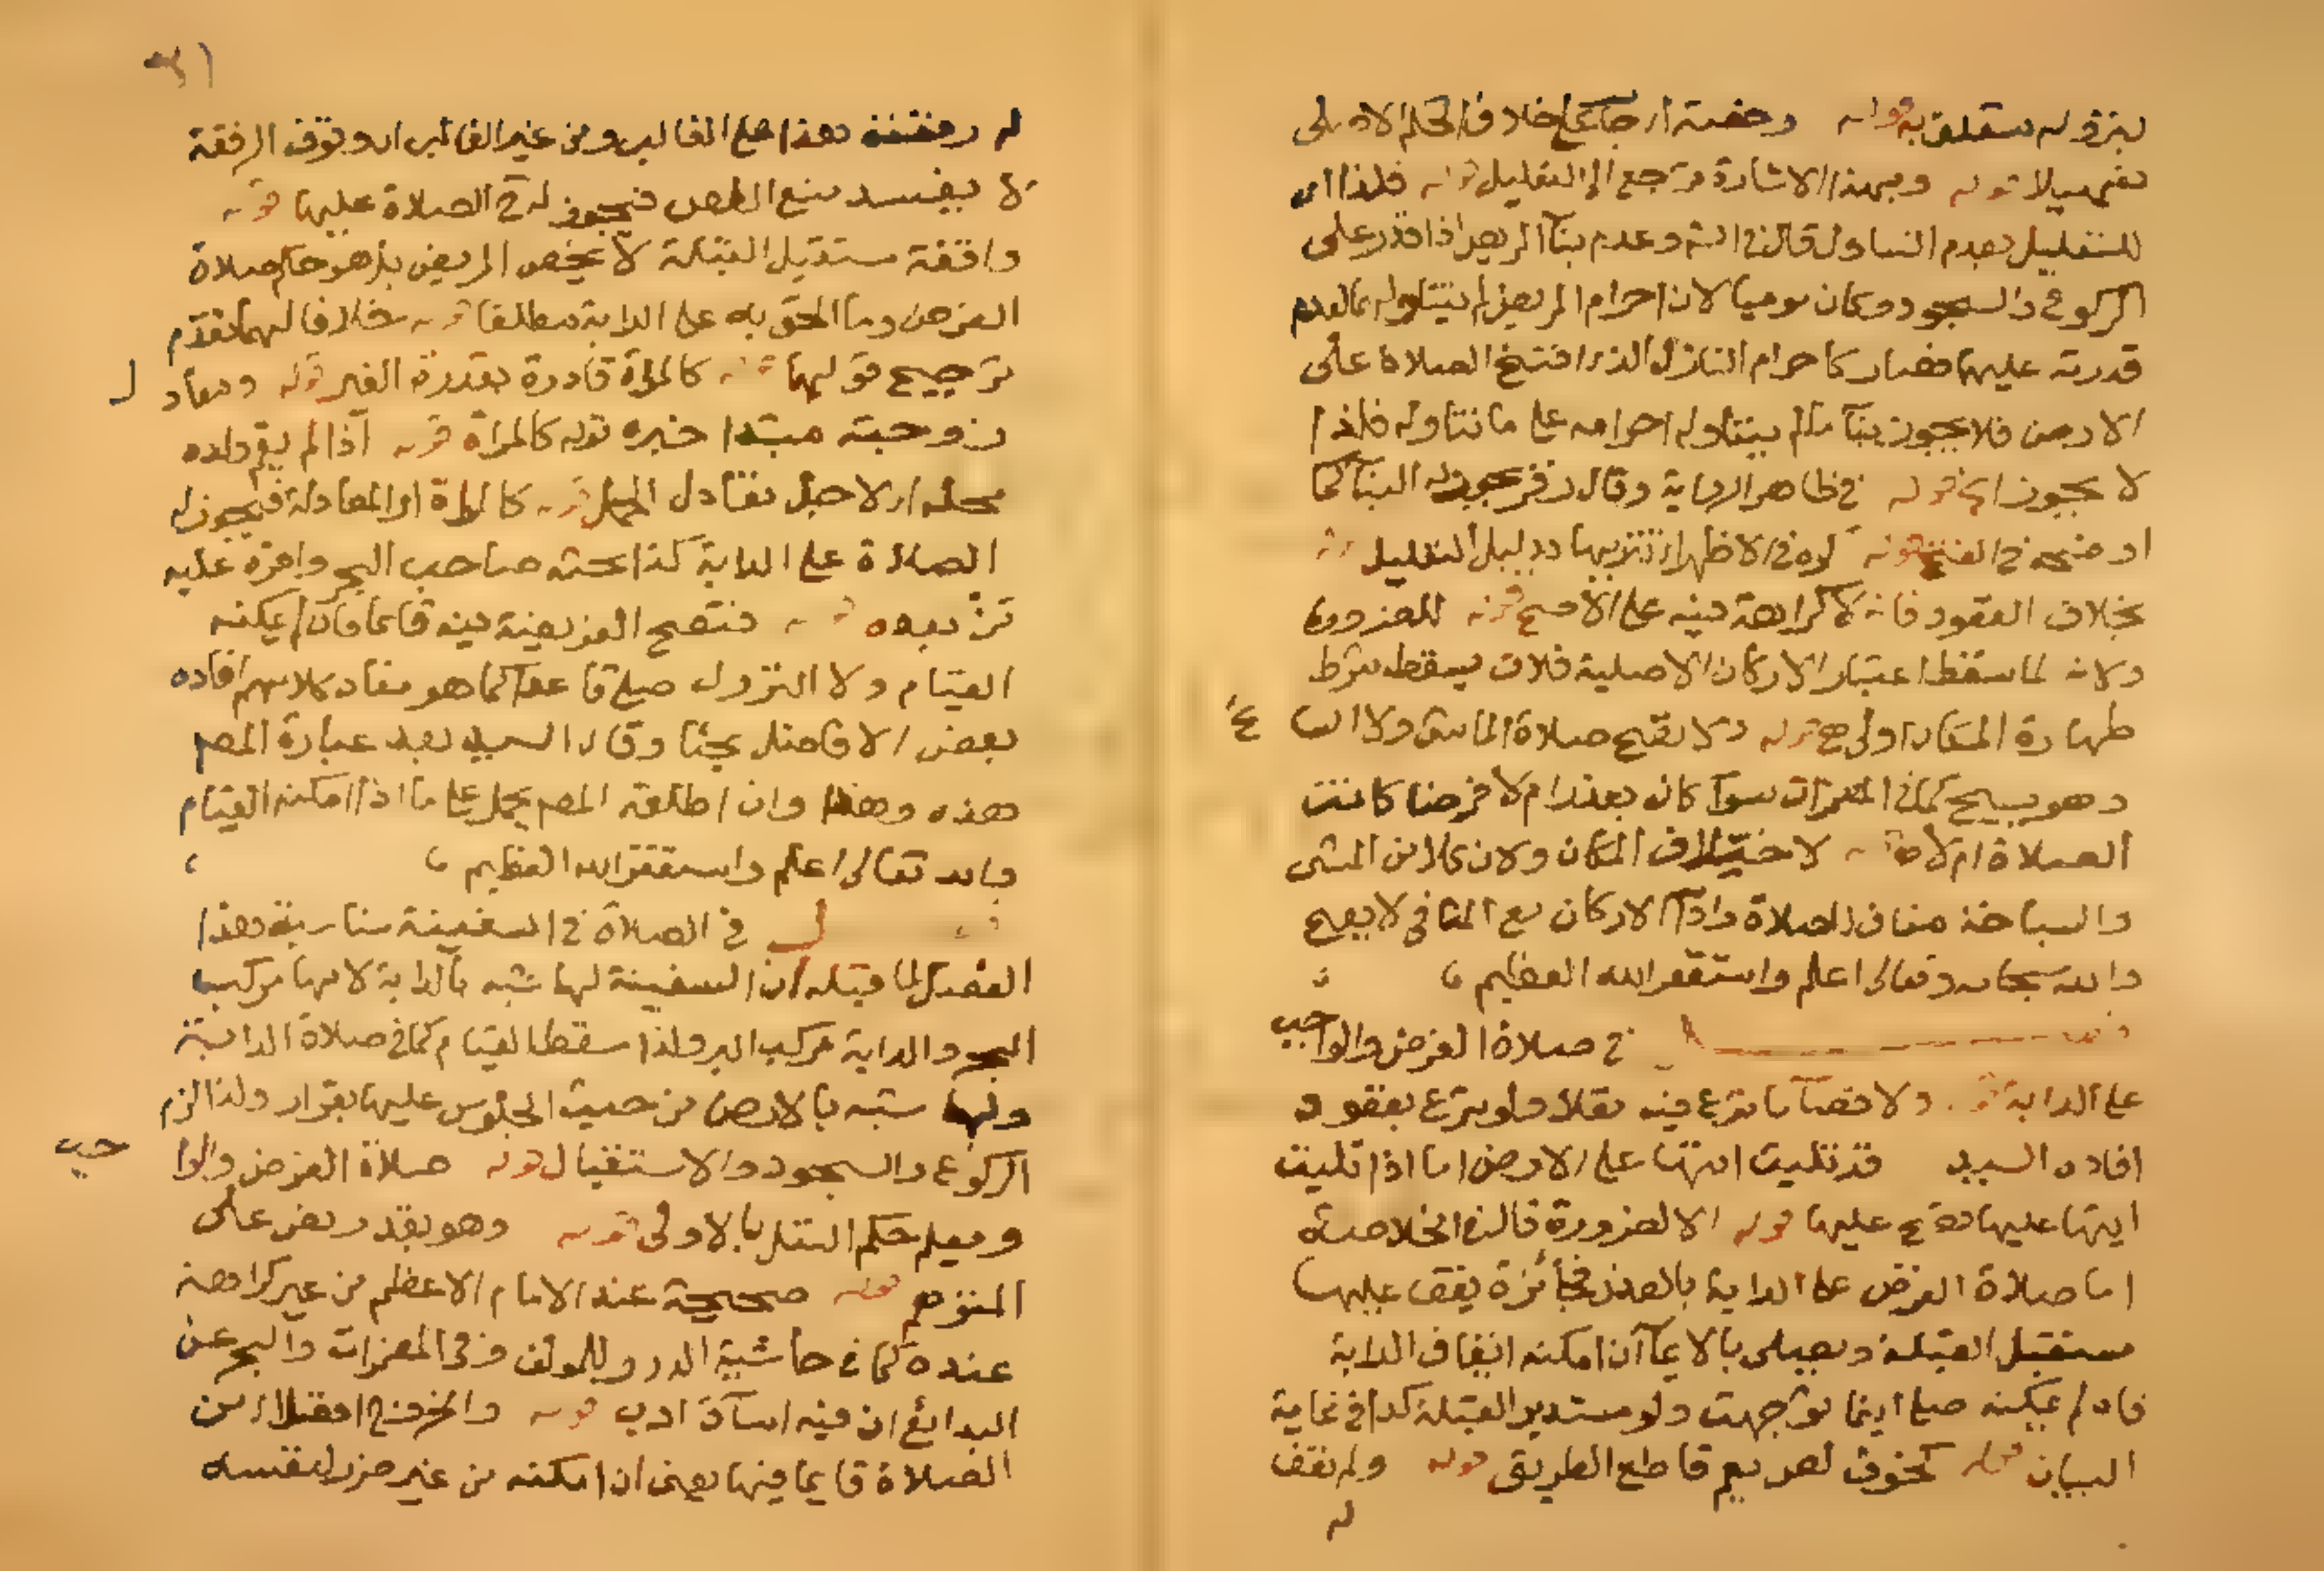 بنزوله متعلق به قوله وحقيقته ارجاع خلاف الحكم الاصلى
تفصيلا قوله وبهذا الاشارة ترجع الى التعليل قوله فلذا اى
للتعليل بعدم التناول قال فى وعدم بنآ المريض اذا قدر على
الركوع والسجود وكان موميا لان احرام المريض لم يتناوله لعدم
قدرته عليهما فصار كاحرام النازل الذى افتتح الصلاة على
الارض فلا يجوز بنآ مالم يتناوله احرامه على ما تناوله فلذا
لا يجوز قوله فى ظاهر الرواية وقال زفر يجوز له البنآ كما
اوضحه فى الفتح قوله كره فى الاظهر تنزيها بدليل التعليل قوله
بخلاف القعود فانه لا كراهة فيه على الاصح قوله للضرورة
ولانه لما سقط اعتبار الاركان الاصلية فلان يسقط شرط
طهارة المكان اولى قوله ولا تصح صلاة الماشى ولا السا
وهو يسبح كما فى المضمرات سوآ كان بعذر ام لا فرضا كانت
الصلاة ام لا قوله لاختلاف المكان ولان كلا من المشى
والسباحة مناف للصلاة وادآ الاركان مع المنافى لا يصح
والله سبحانه وتعالى اعلم واستغفر الله العظيم
فصل فى صلاة الفرض والواجب
على الدابة قوله ولا قضآ ما شرع فيه نفلا ولو شرع بقعود
افاده السيد قد تليت ايتها على الارض اما اذا تليت
ايتها عليها تصح عليها قوله الا لضرورة قال فى الخلاصة
اما صلاة الفرض على الدابة بالعذر فجائزة يقف عليها
مستقبل القبلة ويصلى بالايمآ ان امكنه ايقاف الدابة
فان لم يمكنه صلى اينما توجهت ولو مستدبر القبلة كذا فى غاية
البيان قوله كخوف لص يعم قاطع الطريق قوله ولم تقف
له
٣١
له رفقته هذا على الغالب ومن غير الغالب ان وقوف الرفقة
لا يفيد مع اللص فيجوز له الصلاة عليها قوله
واقفة مستقبل القبلة لا يخص المريض بل هو حكم صلاة
الفرض وما الحق به على الدابة مطلقا قوله خلافا لهما تقدم
ترجيح قولهما قوله كالمرآة قادرة بقدرة الغير قوله ومعاد ل
زوجته مبتدا خبره قوله كالمرآة قوله اذا لم يقم ولده
محله لاجل تعادل المحمل قوله كالمرآة اى المعادلة فيجوز له
الصلاة على الدابة كذا بحثه صاحب البحر واقره عليه
من بعده قوله فتصح الفريضة فيه قائما فان لم يمكنه
القيام ولا النزول صلى قاعدا كما هو مفاد كلامهم افاده
بعض الافاضل بحثا وقال السيد بعد عبارة المصـ
هذه وهذا وان اطلقه المصـ يحمل على ما اذا امكنه القيام
والله تعالى اعلم واستغفر الله العظيم
فصل فى الصلاة فى السفينة مناسبة هذا
الفصل لما قبله ان السفينة لها شبه بالدابة لانها مركب
البحر والدابة مركب البر ولذا سقط القيام كما فى صلاة الدابة
ولها شبه بالارض من حيث الجلوس عليها بقرار ولذا لزم
الركوع والسجود والاستقبال قوله صلاة الفرض والواجب
ويعلم حكم النفل بالاولى قوله وهو يقدر يعنى على
قوله صحيحة عند الامام الاعظم من غير كراهة
عنده كما فى حاشية الدرر للمؤلف وفى المضمرات والبحر عن
البدائع ان فيه اسآة ادب قوله والخروج افضل اى من
الصلاة قايما فيها يعنى ان امكنه من غير ضرر لنفسه